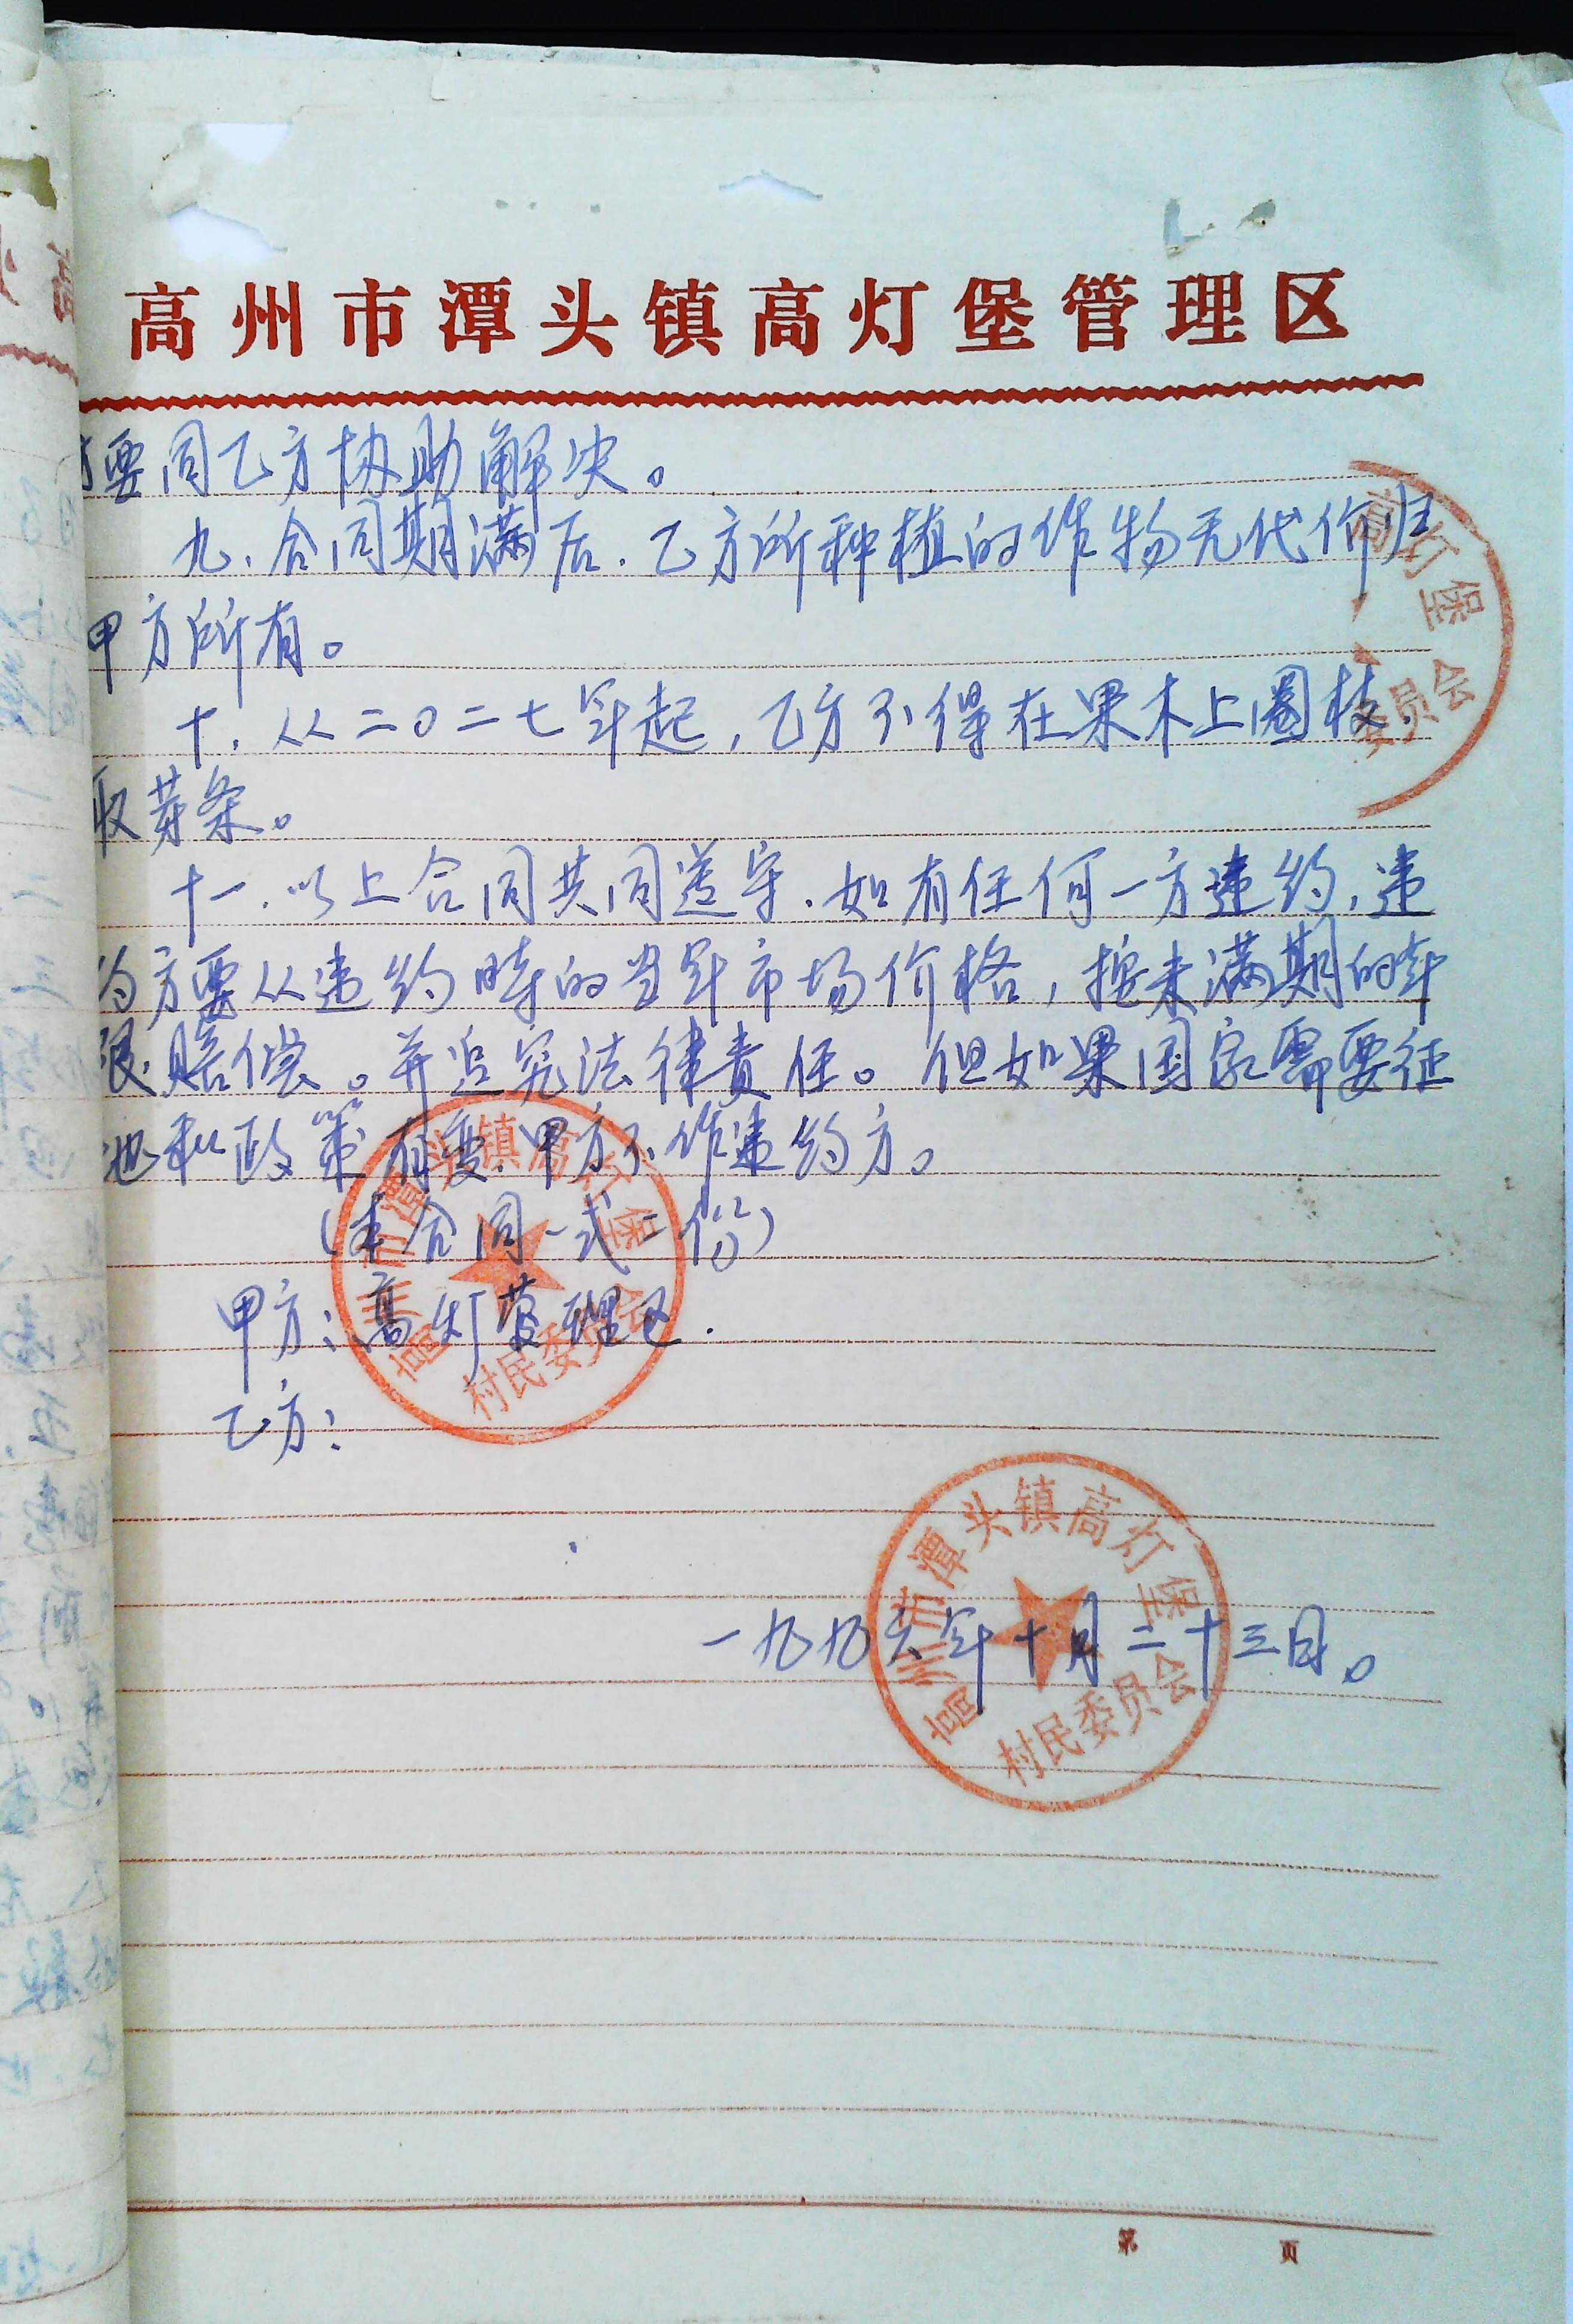 高州市潭头镇高灯堡管理区
要同乙方协助解决。
九、合同期满后.乙方所种植的作物无代价归
甲方所有。
十、从二〇二七年起,乙方不得在果木上圈枝、
取芽条。
十一、以上合同共同遵守.如有任何一方违约,违
约方要从违约时的当年市场价格,按未满期的年
限赔偿。并追究法律责任。但如果国家需要征
地和政策有变.甲方不作违约方。
(本合同一式二份)
甲方:高灯管理区.
乙方:
一九九六年十月二十三日。
高州市潭头镇高灯堡
村民委员会
高州市潭头镇高灯堡
村民委员会
高灯堡
委员会
第 页